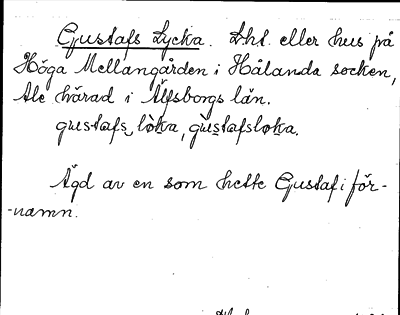 Gustafs Lycka. Lht. eller hus på
Höga Mellangården i Hålanda socken,
Ale härad i Älfsborgs län.
gustafs lòka, gùstafsloka.
Ägd av en som hette Gustaf i för-
-namn.